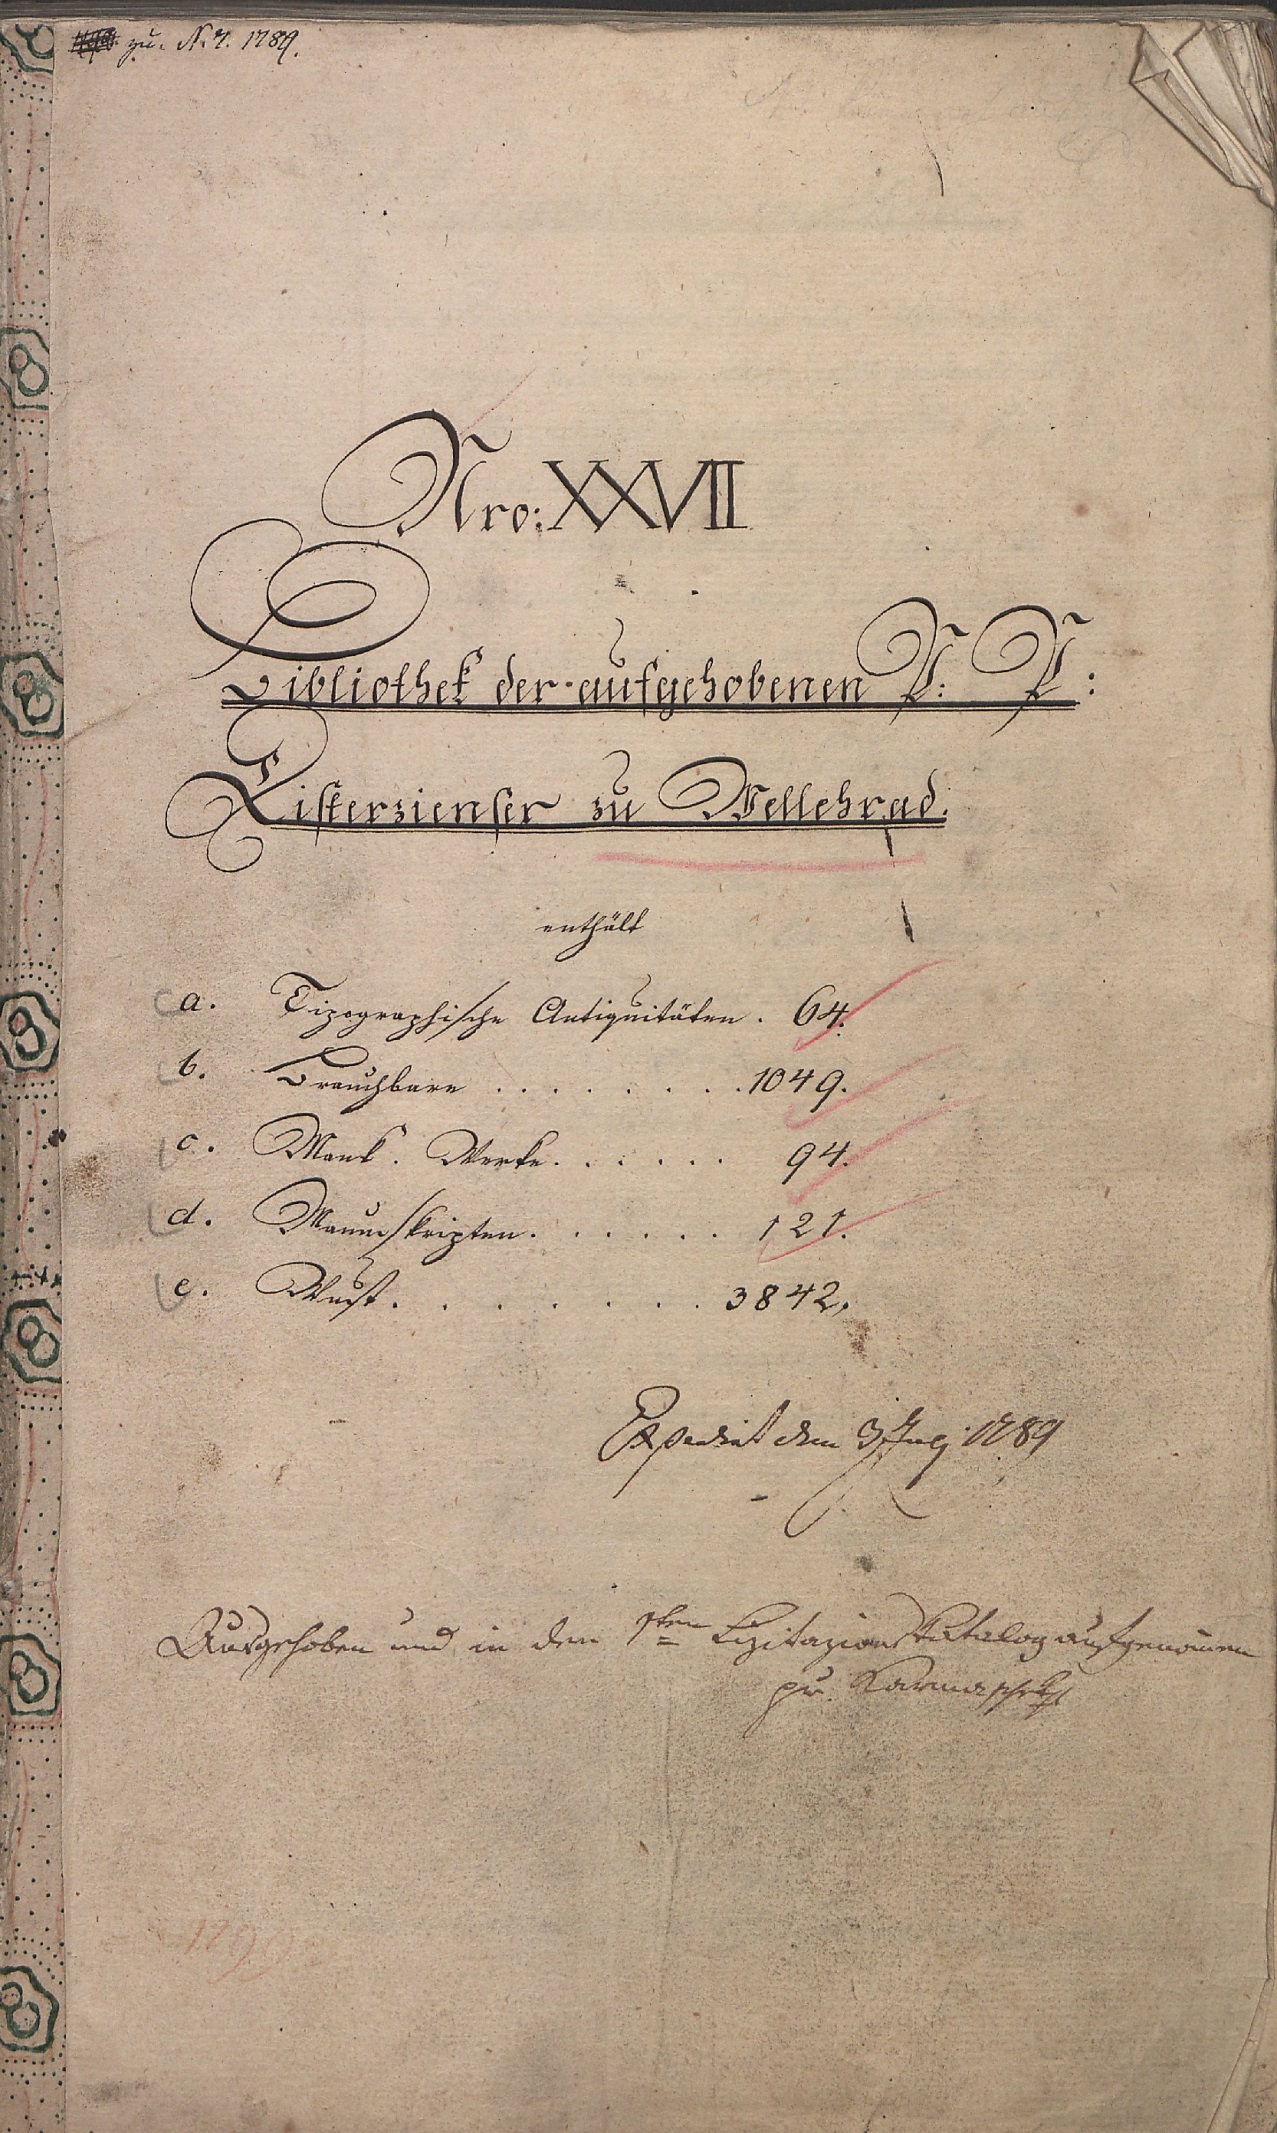 zu. N. 7. 1789.
Nro: XXVII
Bibliothek der aufgehobenen P: P:
Zisterzienser zu Wellehrad.
enthält
a. Tipographische Antiquitäten. 64.
b. Brauchbare ........ 1049.
c. Mank. Werke....... 94.
d. Manuskripten....... 121.
e. Wust......... 3842.
Expedirt den 3t Aug 1789
Ausgehoben und in den 1sten Lizitazions Katalog aufgenom̄en
pr.